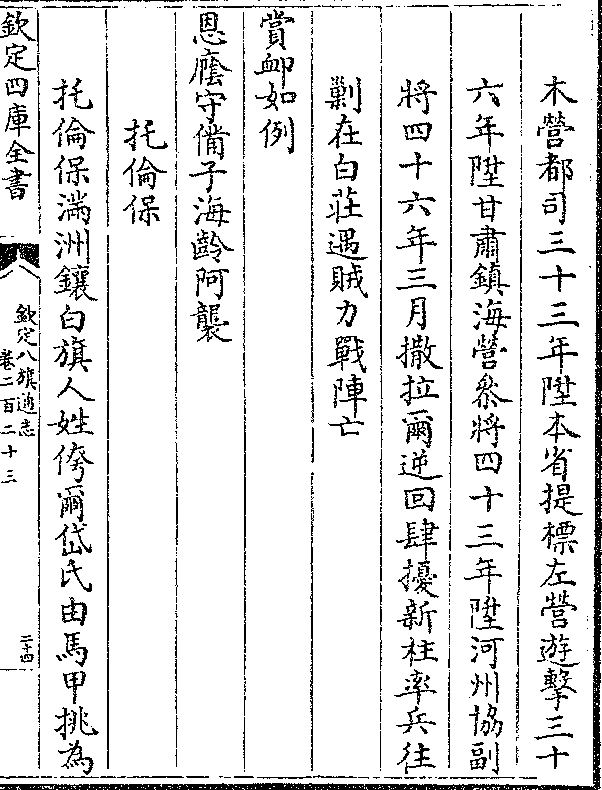 木營都司三十三年陞本省提標左營遊擊三十
六年陞甘肅鎮海營叅將四十三年陞河州協副
將四十六年三月撒拉爾逆回肆擾新柱率兵往
剿在白莊遇賊力戰陣亡
賞䘏如例
恩廕守備子海齡阿襲
托倫保
托倫保滿洲鑲白旗人姓侉爾岱氏由馬甲挑為
欽定四庫全書
欽定八旗通志
卷二百二十三
二十四